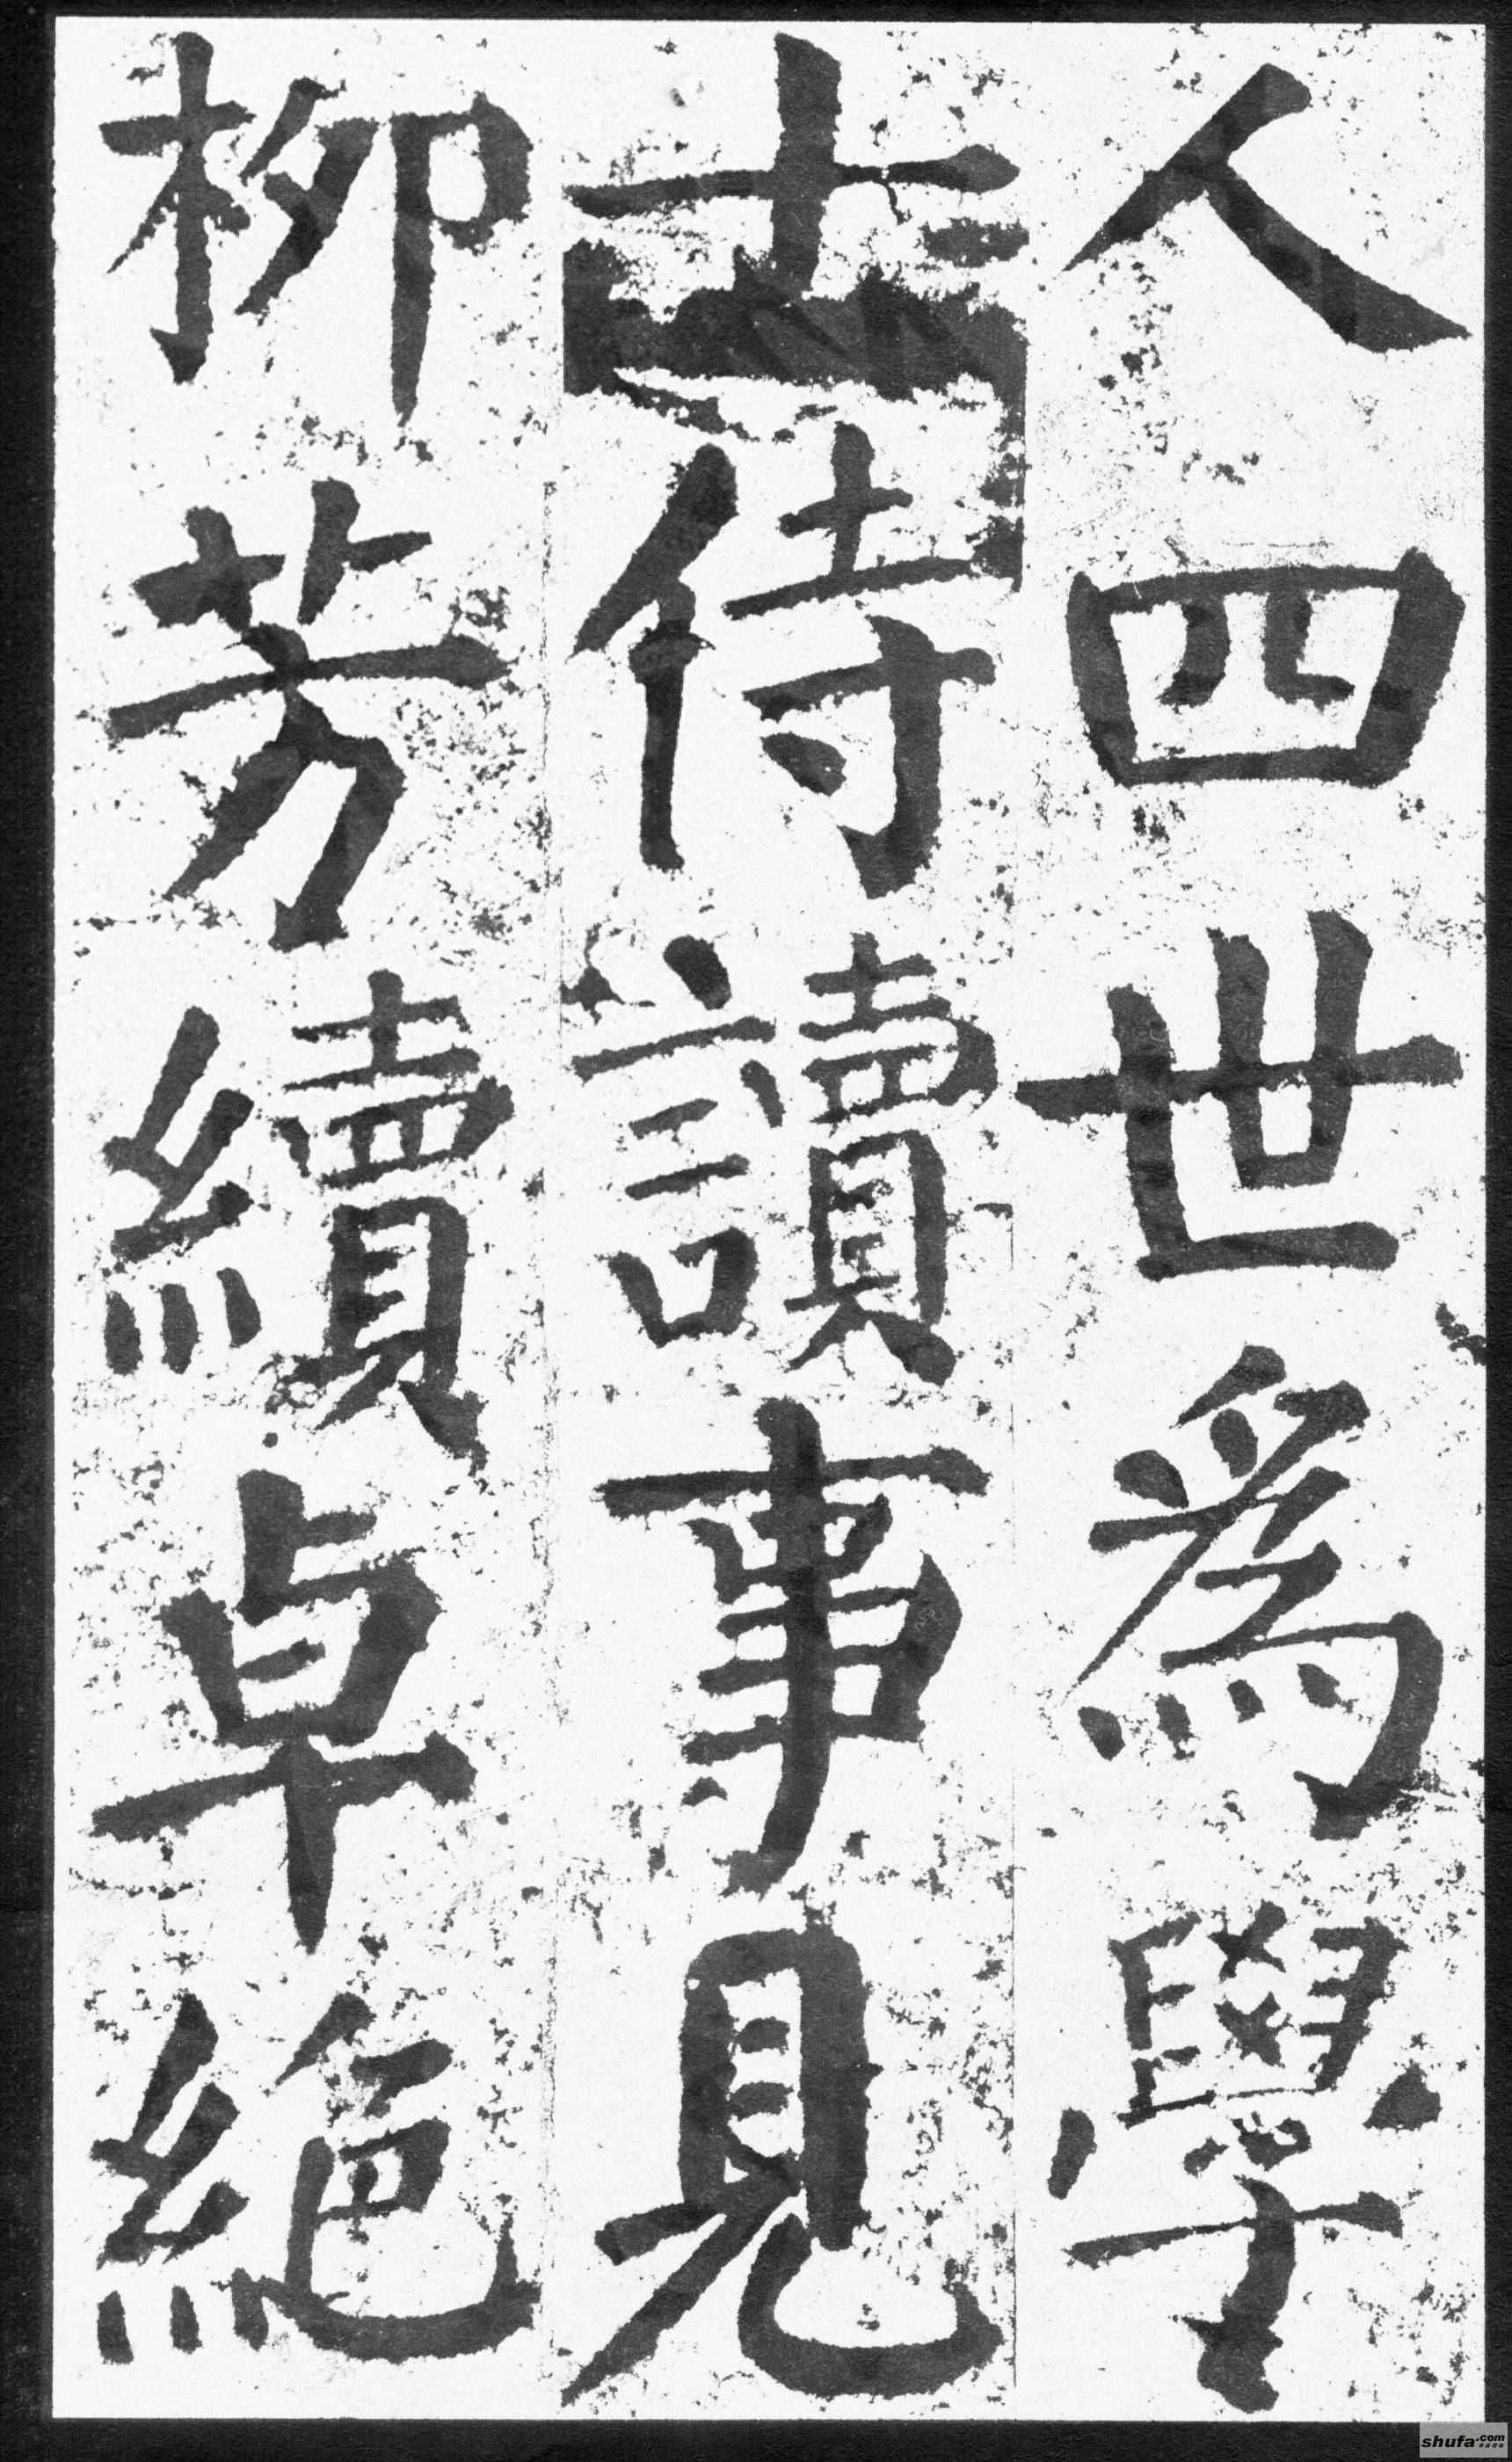 人四世爲學
士侍讀事見
柳芳續卓絕
shufa.com